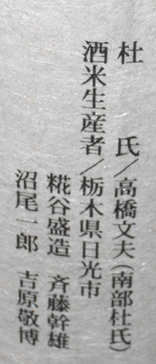 杜　氏／高橋文夫(南部杜氏)
酒米生産者／栃木県日光市
糀谷盛造　斉藤幹雄
沼尾一郎　吉原敬博